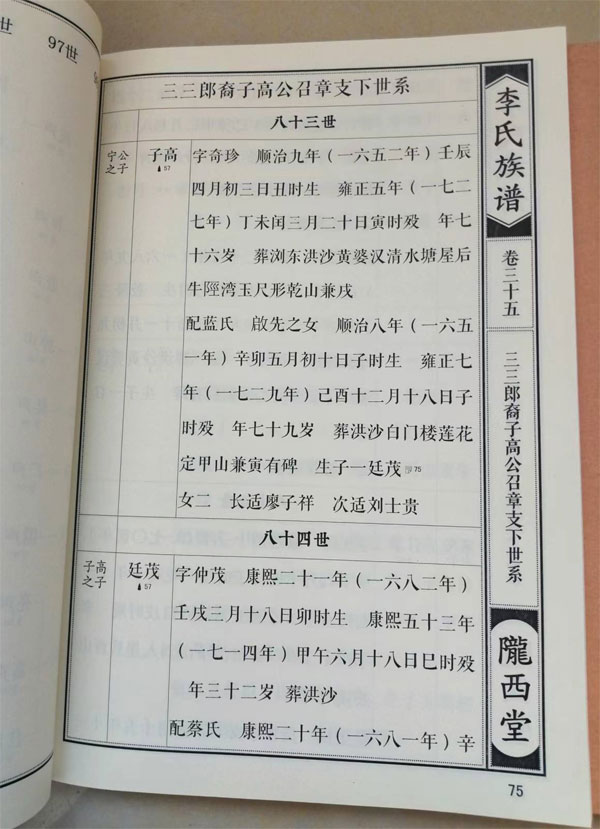 世
97世
三三郎裔子高公召章支下世系
八十三世
宁公之子
子高
▲57
字奇珍 顺治九年(一六五二年)壬辰
四月初三日丑时生 雍正五年(一七二
七年)丁未闰三月二十日寅时殁 年七
十六岁 葬浏东洪沙黄婆汉清水塘屋后
牛陘湾玉尺形乾山兼戌
配蓝氏 啟先之女 顺治八年(一六五
一年)辛卯五月初十日子时生 雍正七
年(一七二九年)己酉十二月十八日子
时殁 年七十九岁 葬洪沙白门楼莲花
定甲山兼寅有碑 生子一廷茂 75
女二 长适廖子祥 次适刘士贵
八十四世
子高之子
廷茂
▲57
字仲茂 康熙二十一年(一六八二年)
壬戌三月十八日卯时生 康熙五十三年
(一七一四年)甲午六月十八日巳时殁
年三十二岁 葬洪沙
配蔡氏 康熙二十年(一六八一年)辛
李氏族谱
卷三十五
三三郎裔子高公召章支下世系
陇西堂
75